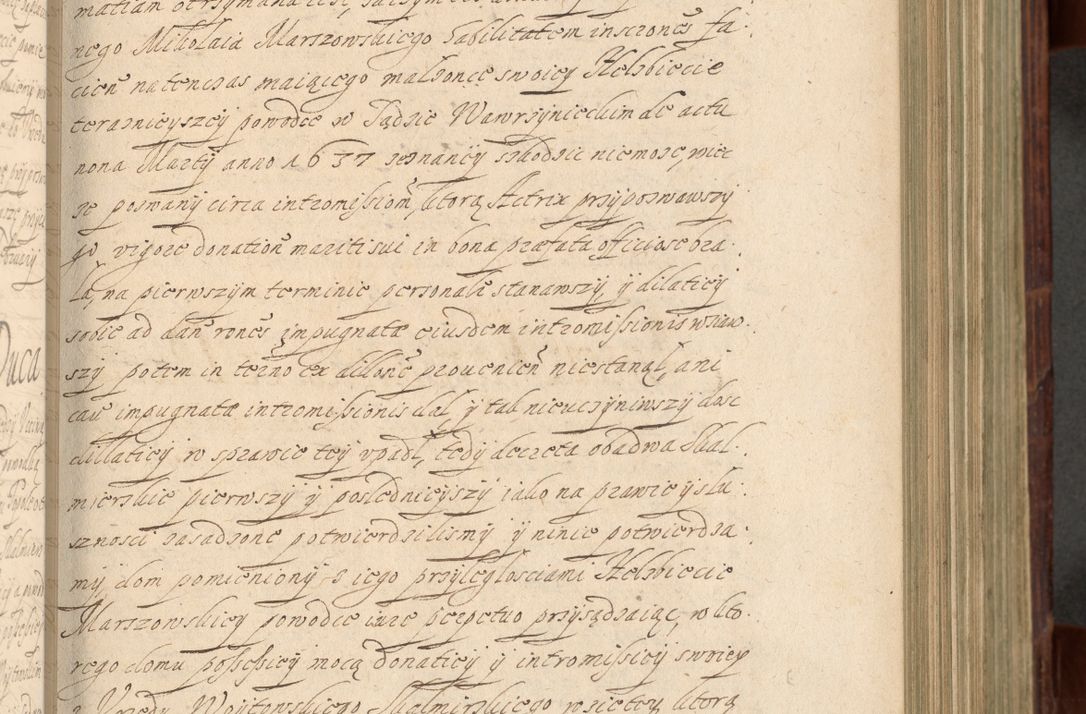 nego Mikolaia Marszowskiego habilitatem inscrones fa:
cień natenczas maiącego małzonce swoiey Helzbiecie
teraznieyszey powodce w Sądzie Wawrzynieckim de actu
nona Martÿ anno 1637 zeznancy szkodzic niemoze, więc
ze pozwany circa intromissiom, ktorą Actrix przypozwawszy
go vigore donation mariti sui in bona præfata officiose bra:
ła, na pierwszym terminie personalr stanawszy, y dilaticy
sobie ad dań rones impugnatæ eiusdem intromissionis wziaw:
szy potem in terno ex dillone prouenień niestanął, ani
cau impugnatæ intromissionis dał, y tak nieuczyniwszy dosc
dillaticy w sprawie tey vpadł, tedy decreta obadwa Skal:
mierskie pierwszy y poslednieyszy iako na prawie y słu:
sznosci zasadzone potwierdzilismy y ninie potwierdza:
my, dom pomieniony z iego przyległosciami Helzbiecie
Marszowskiey powodce iure perpetuo przysądzaiąc, w kto:
rego domu possessiey mocą donaticy y intromissiey swoiey
z Vrzędu Woytowskiego Skalmirskiego wzietey ktorą